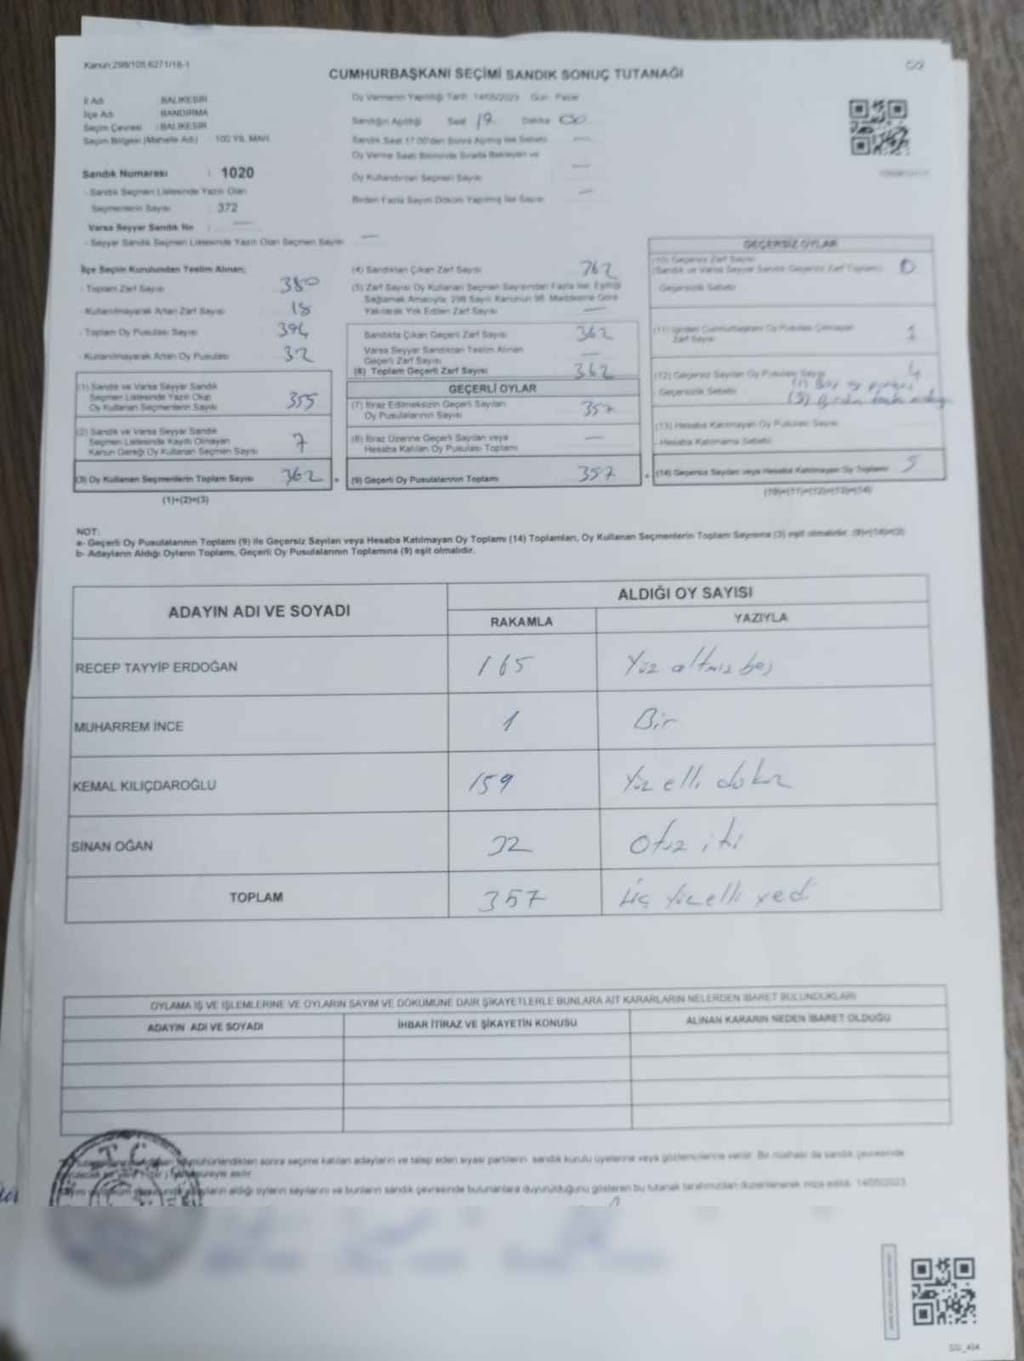 Kanun:298/105,6271/18-1
CUMHURBAŞKANI SEÇİMİ SANDIK SONUÇ TUTANAĞI
İl Adı : BALIKESİR
İlçe Adı : BANDIRMA
Seçim Çevresi : BALIKESİR
Seçim Bölgesi (Mahalle Adı) : 100.YIL MAH.
Oy Vermenin Yapıldığı Tarih : 14/05/2023 Gün : Pazar
Sandığın Açıldığı Saat 17 Dakika 00
Sandık Saat 17:00'den Sonra Açılmış İse Sebebi
Oy Verme Saati Bitiminde Sırada Bekleyen ve
Oy Kullandırılan Seçmen Sayısı
Birden Fazla Sayım Döküm Yapılmış İse Sayısı
Sandık Numarası : 1020
- Sandık Seçmen Listesinde Yazılı Olan
Seçmenlerin Sayısı : 372
Varsa Seyyar Sandık No :
- Seyyar Sandık Seçmen Listesinde Yazılı Olan Seçmen Sayısı
İlçe Seçim Kurulundan Teslim Alınan;
- Toplam Zarf Sayısı 380
- Kullanılmayarak Artan Zarf Sayısı 18
- Toplam Oy Pusulası Sayısı 394
- Kullanılmayarak Artan Oy Pusulası 32
(1) Sandık ve Varsa Seyyar Sandık
Seçmen Listesinde Yazılı Olup
Oy Kullanan Seçmenlerin Sayısı 355
(2) Sandık ve Varsa Seyyar Sandık
Seçmen Listesinde Kayıtlı Olmayan
Kanun Gereği Oy Kullanan Seçmen Sayısı 7
(3) Oy Kullanan Seçmenlerin Toplam Sayısı 362
(1)+(2)=(3)
(4) Sandıktan Çıkan Zarf Sayısı 362
(5) Zarf Sayısı Oy Kullanan Seçmen Sayısından Fazla İse, Eşitliği
Sağlamak Amacıyla, 298 Sayılı Kanunun 98. Maddesine Göre
Yakılarak Yok Edilen Zarf Sayısı
Sandıkta Çıkan Geçerli Zarf Sayısı 362
Varsa Seyyar Sandıktan Teslim Alınan
Geçerli Zarf Sayısı
(6) Toplam Geçerli Zarf Sayısı 362
GEÇERLİ OYLAR
(7) İtiraz Edilmeksizin Geçerli Sayılan
Oy Pusulalarının Sayısı 357
(8) İtiraz Üzerine Geçerli Sayılan veya
Hesaba Katılan Oy Pusulası Toplamı
(9) Geçerli Oy Pusulalarının Toplamı 357
GEÇERSİZ OYLAR
(10) Geçersiz Zarf Sayısı
(Sandık ve Varsa Seyyar Sandık Geçersiz Zarf Toplamı) 0
Geçersizlik Sebebi
(11) İçinden Cumhurbaşkanı Oy Pusulası Çıkmayan
Zarf Sayısı 1
(12) Geçersiz Sayılan Oy Pusulası Sayısı 4
Geçersizlik Sebebi (1) Boş oy
(3)
(13) Hesaba Katılmayan Oy Pusulası Sayısı
- Hesaba Katılmama Sebebi
(14) Geçersiz Sayılan veya Hesaba Katılmayan Oy Toplamı 5
(10)+(11)+(12)+(13)=(14)
NOT:
a- Geçerli Oy Pusulalarının Toplamı (9) ile Geçersiz Sayılan veya Hesaba Katılmayan Oy Toplamı (14) Toplamları, Oy Kullanan Seçmenlerin Toplam Sayısına (3) eşit olmalıdır. (9)+(14)=(3)
b- Adayların Aldığı Oyların Toplamı, Geçerli Oy Pusulalarının Toplamına (9) eşit olmalıdır.
ADAYIN ADI VE SOYADI
ALDIĞI OY SAYISI
RAKAMLA YAZIYLA
RECEP TAYYİP ERDOĞAN 165 Yüz altmış beş
MUHARREM İNCE 1 Bir
KEMAL KILIÇDAROĞLU 159 Yüz elli dokuz
SİNAN OĞAN 32 Otuz iki
TOPLAM 357 Üç Yüz elli yedi
OYLAMA İŞ VE İŞLEMLERİNE VE OYLARIN SAYIM VE DÖKÜMÜNE DAİR ŞİKAYETLERLE BUNLARA AİT KARARLARIN NELERDEN İBARET BULUNDUKLARI
ADAYIN ADI VE SOYADI İHBAR İTİRAZ VE ŞİKAYETİN KONUSU ALINAN KARARIN NEDEN İBARET OLDUĞU
sonra seçime katılan adayların ve talep eden siyasi partilerin sandık kurulu üyelerine veya gözlemcilerine verilir. Bir nüshası da sandık çevresinde
süreyle asılır.
aldığı oyların sayılarını ve bunların sandık çevresinde bulunanlara duyurulduğunu gösteren bu tutanak tarafımızdan düzenlenerek imza edildi. 14/05/2023
T.C.